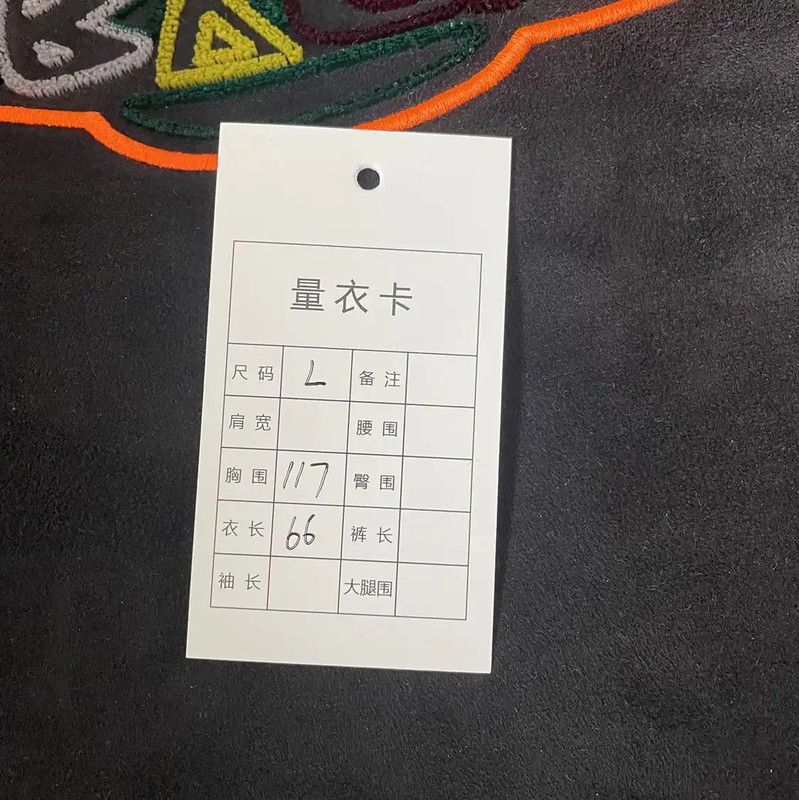 量衣卡
尺码 L 备注
肩宽 腰围
胸围 117 臀围
衣长 66 裤长
袖长 大腿围